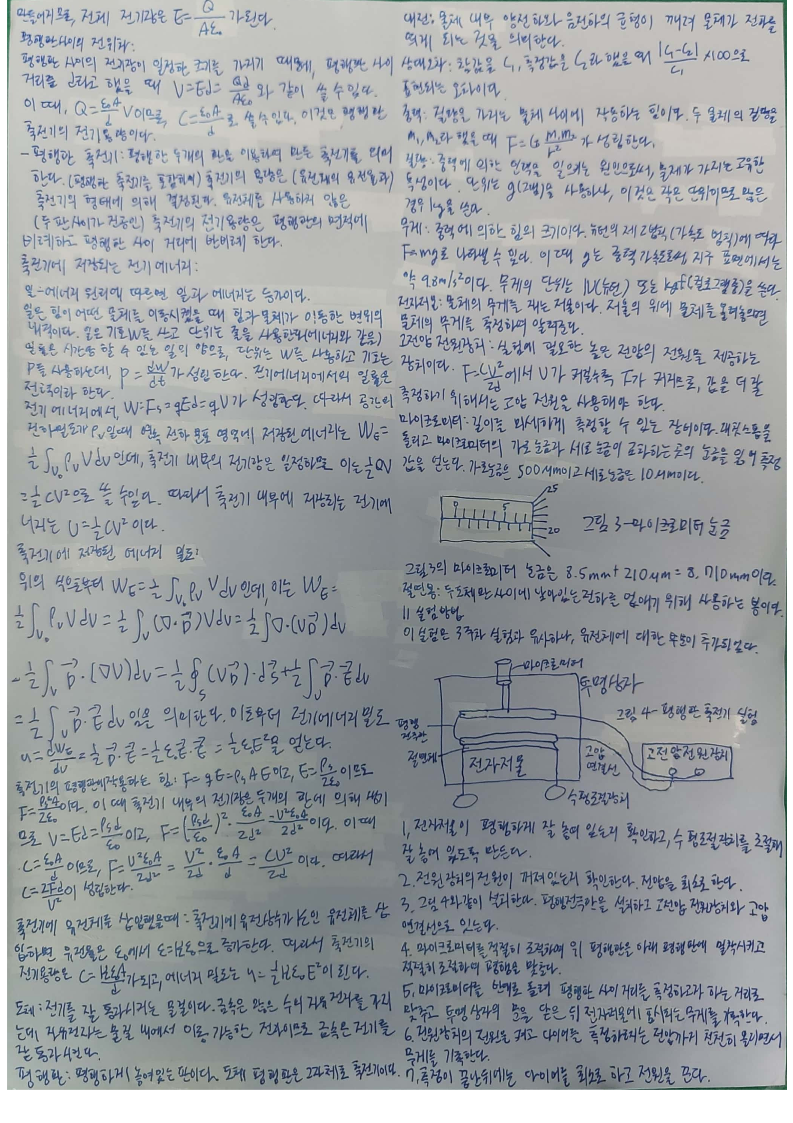 만들어지므로, 전체 전기장은 E=Q/Aε₀ 가 된다.
평행판 사이의 전위차:
평행판 사이의 전기장이 일정한 크기를 가지기 때문에, 평행판 사이
거리를 d라고 했을 때 V=Ed=Qd/Aε₀ 와 같이 쓸 수 있다.
이 때, Q=ε₀A/d V이므로, C=ε₀A/d 로 쓸 수 있다. 이것은 평행판
축전기의 전기용량이다.
-평행판 축전기: 평행한 두개의 판을 이용하여 만든 축전기를 의미
한다. (평행판 축전기를 포함하여) 축전기의 용량은 (유전체의 유전율과)
축전기의 형태에 의해 결정된다. 유전체를 사용하지 않은
(두 판 사이가 진공인) 축전기의 전기용량은 평행판의 면적에
비례하고 평행판 사이 거리에 반비례 한다.
축전기에 저장되는 전기에너지:
일-에너지 원리에 따르면 일과 에너지는 등가이다.
일은 힘이 어떤 물체를 이동시켰을 때 힘과 물체가 이동한 변위의
내적이다. 일은 기호 W를 쓰고 단위는 줄을 사용한다(에너지와 같음)
일률은 시간당 할 수 있는 일의 양으로, 단위는 W를 사용하고 기호는
P를 사용하는데, P=dW/dt 가 성립한다. 전기에너지에서의 일률은
전력이라 한다.
전기에너지에서, W=Fs=qEd=qV가 성립한다. 따라서 공간의
전하밀도가 ρᵥ일때 연속 전하 분포 영역에 저장된 에너지는 W_E=
½∫ᵥρᵥVdv인데, 축전기 내부의 전기장은 일정하므로 이는 ½QV
=½CV²으로 쓸 수 있다. 따라서 축전기 내부에 저장되는 전기에
너지는 U=½CV²이다.
축전기에 저장된 에너지 밀도:
위의 식으로부터 W_E=½∫ᵥρᵥVdv인데 이는 W_E=
½∫ᵥρᵥVdv=½∫ᵥ(∇·D⃗)Vdv=½∫∇·(VD⃗)dv
-½∫ᵥD⃗·(∇V)dv=½∮ₛ(VD⃗)·ds⃗+½∫ᵥD⃗·E⃗dv
=½∫ᵥD⃗·E⃗dv 임을 의미한다. 이로부터 전기에너지 밀도
u=dW_E/dv=½D⃗·E⃗=½ε₀E⃗·E⃗=½ε₀E²을 얻는다.
축전기의 평행판에 작용하는 힘: F=qE=ρₛAE이고, E=ρₛ/2ε₀이므로
F=ρₛ²A/2ε₀이다. 이 때 축전기 내부의 전기장은 두개의 판에 의해 생기
므로 V=Ed=ρₛd/ε₀이고, F=(ρₛd/ε₀)²·ε₀A/2d²=V²ε₀A/2d²이다. 이 때
C=ε₀A/d이므로, F=V²ε₀A/2d²=V²/2d·ε₀A/d=CV²/2d 이다. 따라서
C=2Fd/V²이 성립한다.
축전기에 유전체를 삽입했을때: 축전기에 유전상수가 κ인 유전체를 삽
입하면 유전율은 ε₀에서 ε=κε₀으로 증가한다. 따라서 축전기의
전기용량은 C=κε₀A/d가 되고, 에너지 밀도는 u=½κε₀E²이 된다.
도체: 전기를 잘 통과시키는 물질이다. 금속은 많은 수의 자유전자를 가지
는데 자유전자는 물질 내에서 이동 가능한 전하이므로 금속은 전기를
잘 통과시킨다.
평행판: 평행하게 놓여있는 판이다. 도체 평행판은 그 자체로 축전기이다.
대전: 물체 내부 양전하와 음전하의 균형이 깨져 물체가 전하를
띄게 되는 것을 의미한다.
상대오차: 참값을 ζ₁, 측정값을 ζ₂라 했을 때 |ζ₁-ζ₂|/ζ₁×100으로
표현되는 오차이다.
중력: 질량을 가지는 물체 사이에 작용하는 힘이다. 두 물체의 질량을
m₁, m₂라 했을 때 F=G M₁M₂/r²가 성립한다.
질량: 중력에 의한 인력을 일으키는 원인으로써, 물체가 가지는 고유한
특성이다. 단위는 g(그램)을 사용하나, 이것은 작은 단위이므로 많은
경우 kg을 쓴다.
무게: 중력에 의한 힘의 크기이다. 뉴턴의 제2법칙(가속도 법칙)에 따라
F=mg로 나타낼 수 있다. 이 때 g는 중력가속도로써 지구 표면에서는
약 9.8m/s²이다. 무게의 단위는 N(뉴턴) 또는 kgf(킬로그램중)을 쓴다.
전자저울: 물체의 무게를 재는 저울이다. 저울의 위에 물체를 올려놓으면
물체의 무게를 측정하여 알려준다.
고전압 전원장치: 실험에 필요한 높은 전압의 전원을 제공하는
장치이다. F=CV²/2d에서 V가 커질수록 F가 커지므로, 값을 더 잘
측정하기 위해서는 고압 전원을 사용해야 한다.
마이크로미터: 길이를 미세하게 측정할 수 있는 장비이다. 래칫스톱을
돌리고 마이크로미터의 가로 눈금과 세로 눈금이 교차하는 곳의 눈금을 읽어 측정
값을 얻는다. 가로눈금은 500μm이고 세로 눈금은 10μm이다.
0 5 25 20
그림 3-마이크로미터 눈금
그림3의 마이크로미터 눈금은 8.5mm+210μm=8.710mm이다.
절연봉: 두 도체판 사이에 남아있는 전하를 없애기 위해 사용하는 봉이다.
11 실험방법
이 실험은 3주차 실험과 유사하나, 유전체에 대한 부분이 추가되었다.
마이크로미터
투명상자
그림 4-평행판 축전기 실험
평행
전극판
절연체
고압
연결선
고전압전원장치
전자저울
수평조절장치
1, 전자저울이 평행하게 잘 놓여 있는지 확인하고, 수평조절장치를 조절해
잘 놓여 있도록 만든다.
2. 전원 장치의 전원이 꺼져 있는지 확인한다. 전압을 최소로 한다.
3. 그림 4와 같이 설치한다. 평행전극판을 설치하고 고전압 전원장치와 고압
연결선으로 잇는다.
4. 마이크로미터를 적절히 조절하여 위 평행판을 아래 평행판에 밀착시키고
적절히 조절하여 평행을 맞춘다.
5, 마이크로미터를 반대로 돌려 평행판 사이 거리를 측정하고자 하는 거리로
맞추고 투명 상자의 문을 닫은 뒤 전자저울에 표시되는 무게를 기록한다.
6. 전원장치의 전원을 켜고 다이얼을 측정하려는 전압까지 천천히 올리면서
무게를 기록한다.
7, 측정이 끝난뒤에는 다이얼을 최소로 하고 전원을 끈다.